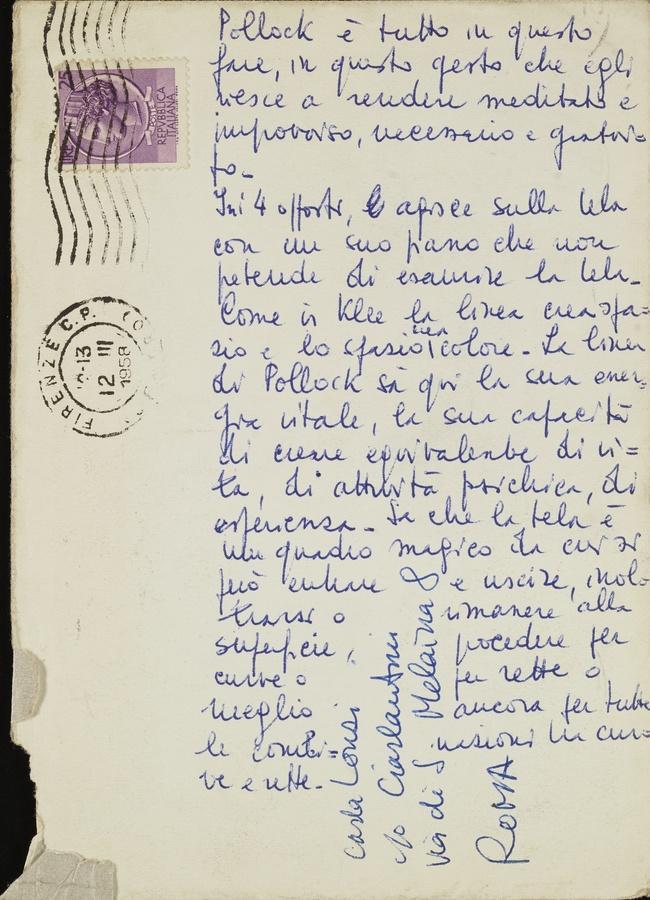 Pollock è tutto in questo
fare, in questo gesto che egli
riesce a rendere meditato e
improvviso, necessario e gratui-
to-
In 4 agisce sulla tela
con un suo piano che non
pretende di esaurire la tela-
Come in Klee la linea crea spa=
zio e lo spazio crea colore- La linea
di Pollock sa qui la sua ener=
gia vitale, la sua capacità
di creare equivalente di vi=
ta, di attività psichica, di
esperienza- Sa che la tela è
un quadro magico da cui si
può entrare e uscire, inol-
trarsi o rimanere alla
superficie, procedere per
curve o per rette o
meglio ancora per tutte
le combi= nazioni tra cur=
ve e rette-
Carla Lonzi
c/o Ciarlantini
via di S Melania 8
ROMA
POSTE
REPVBBLICA
ITALIANA
FIRENZE C.P.
12 III
1958